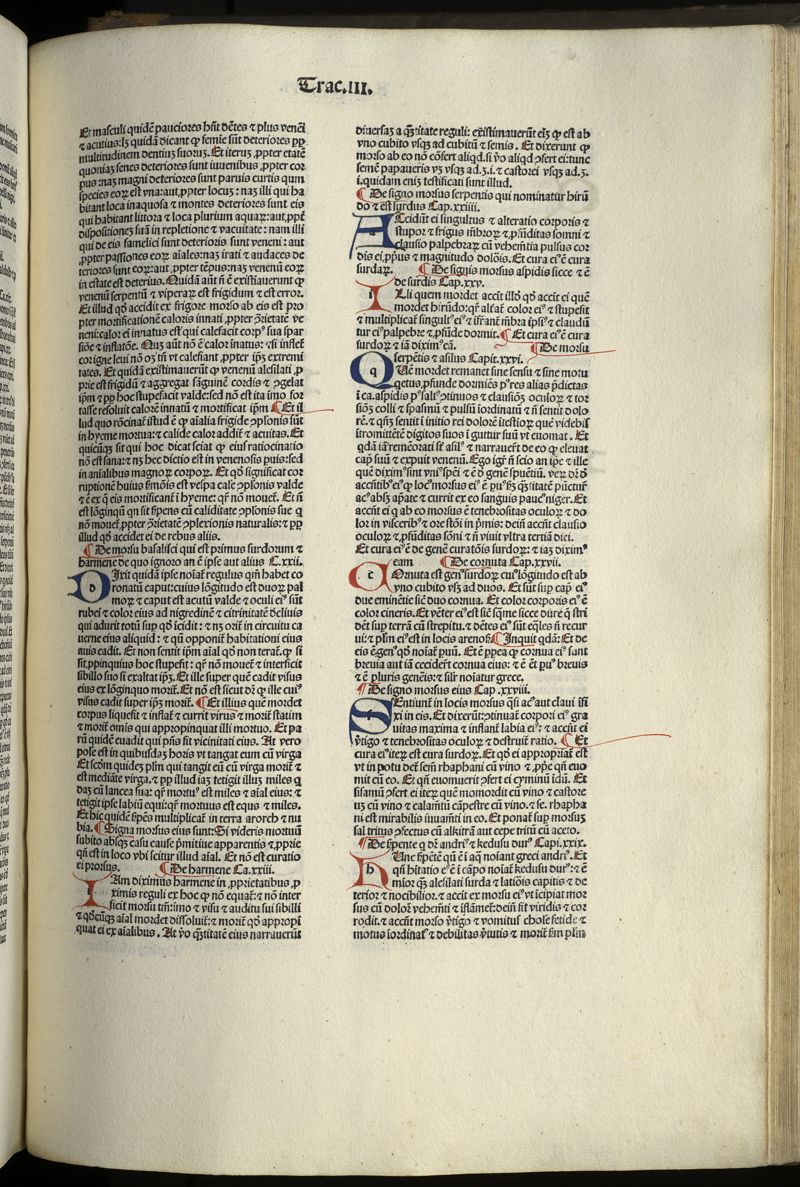 Trac.III.
Et masculi quidē pauciores hñt dētes ⁊ plus venēi
⁊ acutius:lꝫ quidā dicant ꝙ femie sūt deteriores ꝓp
multitudinem dentiuꝫ suoruꝫ.Et iteruꝫ ꝓpter etatē
quoniaꝫ senes deteriores sunt iuuenibus ꝓpter cor
pus:naꝫ magni deteriores sunt paruis cuꝫ qum
species eoꝝ est vna:aut,ꝓpter locus: naꝫ illi qui ha
bitant loca inaquosa ⁊ montes deteriores sunt eis
qui habitant littora ⁊ loca plurium aquaꝝ:aut,ꝓpt̄
dispositiones suā in repletione ⁊ vacuitate: nam illi
qui de eis famelici sunt deterioris sunt veneni: aut
,ꝓpter passiones eoꝝ aīales:naꝫ irati ⁊ audaces de
teriores sunt eoꝝ:aut ꝓpter tēpus:naꝫ venenū eoꝝ
in estate est deterius. Quidā aūt ñ ē existīauerunt ꝙ
venenū serpentū ⁊ viperaꝝ est frigidum ⁊ est error.
Et illud qđ accidit ex frigore morso ab eis est pro
pter mortificationē caloris innati ,ꝓpter ꝓrietatē ve
neni:calor ei innatus est qui calefacit corpꝰ sua spar
siōe ⁊ inflatōe. Nuꝫ aūt nō ē calor inatus: ⁊ si inflet̄
cor igne leui nō oꝫ tñ vt calefiant ,ꝓpter ipꝫ extremi
tates. Et quidā existimauerūt ꝙ venenū alesilati ,p
prie est frigidū ⁊ aggregat sāguinē cordis ⁊ ꝯgelat
ipm ⁊ ꝓp hoc stupefacit valde:sed nō est ita imo for
tasse resoluit calorē innatū ⁊ mortificat ipm ¶ Et il
lud quo rōcinat̄ istud ē ꝙ aīalia frigide ꝯplonis sūt
in hyeme mortua:⁊ calide calor addit̄ ⁊ acuitas. Et
quicūqꝫ sit qui hoc dicat sciat ꝙ eius ratiocinatio
nō est sana:⁊ nꝫ hec dictio est in venenosis puis:sed
in aīalibus magnoꝝ corpoꝝ. Et qđ significat cor
ruptionē huius sermōis est vespa cale ꝯplonis valde
⁊ ē ex ꝙ eis mortificant̄ i hyeme: qr̄ nō mouet̄. Et ñ
est lōginqū qn sit serpēs cū caliditate ꝯplonis sue ꝙ
nō mouet̄,ꝓpter ꝓrietatē ꝯplexionis naturalis:⁊ ꝓp
illud qđ accidet ei de rebus aliis.
¶ De morsu basalisci qui est primus surdorum ⁊
harmene de quo ignoro an ē ipse aut alius C.xxii.
Dixit quidā ipse noīat̄ regulus qm̄ habet co
ronatū caput:cuius lōgitudo est duoꝝ pal
moꝝ ⁊ caput est acutū valde ⁊ oculi eiꝰ sūt
rubei ⁊ color eius ad nigredinē ⁊ citrinitatē ꝺcliuis
qui adurit totū sup qđ icidit: ⁊ nꝫ orit̄ in circuitu ca
uerne eius aliquid: ⁊ qñ opponit̄ habitationi eius
auis cadit. Et non sentit ipm aīal qđ non terat̄.ꝙ si
sit.ꝓpinquius hoc stupefit: qr̄ nō mouet̄ ⁊ interficit
sibillo suo si exaltat ipꝫ. Et ille super quē cadit visus
eius ex lōginquo morit̄. Et nō est sicut dr̄ ꝙ ille cuiꝰ
visus cadit super ipꝫ morit̄. ¶ Et illius quē mordet
corpus liquefit ⁊ inflat̄ ⁊ currit virus ⁊ morit̄ statim
⁊ morit̄ omis qui appropinquat illi mortuo. Et pa
rū quidē euadit qui pñs fit vicinitati eius. At vero
pose est in quibusdaꝫ horis vt tangat eum cū virga
Et scdm quidꝫ plm qui tangit eū cū virga morit̄ ⁊
est mediāte virga. ⁊ ꝓp illud iaꝫ tetigit illuꝫ miles q̄
daꝫ cū lancea sua: qr̄ mortuꝰ est miles ⁊ aīal eius: ⁊
tetigit ipse labiū equi:qr̄ mortuus est equs ⁊ miles.
Et hic quidē serpēs multiplicat̄ in terra arorch ⁊ nu
bia. ¶ Signa morsus eius sunt:Si videris mortuū
subito absqꝫ casu cause ṗmitiue apparentis ⁊ ꝓprie
qñ est in loco vbi scitur illud aīal. Et nō est curatio
ei prorsus. ¶ De harmene Ca.xxiii.
Iam diximus harmene in ,ꝓprietatibus ,p
ximis reguli ex hoc ꝙ nō equat̄:⁊ nō inter
ficit morsu tm̄:imo ⁊ visu ⁊ auditu sui sibilli
⁊ qđcūqꝫ aīal mordet dissoluit̄:⁊ morit̄ qđ appropi
quat ei ex aīalibus. At ṽo q̄ꝫtitatē eius narrauerūt
diuersaꝫ a q̄ꝫtitate reguli: existimauerūt eīꝫ ꝙ est ab
vno cubito vsqꝫ ad cubitū ⁊ semis. Et dixerunt ꝙ
morso ab eo nō cōfert aliqd.si ṽo aliqd ꝯfert ei:tunc
semē papaueris vꝫ vsqꝫ ad.ʒ.i.⁊ castorei vsqꝫ ad.ʒ.
i.quidam eniꝫ testificati sunt illud.
¶ De signo morsus serpentis qui nominatur hirū
do ⁊ est surdus Cap.xxiiii.
Accidūt ei singultus ⁊ alteratio corporis ⁊
stupor ⁊ frigus mēbroꝝ ⁊ ,pfūditas somni ⁊
clausio palpebraꝝ cū vehemētia pulsus cor
dis ei,ꝓpriꝰ ⁊ magnitudo dolōis. Et cura eiꝰ ē cura
surdaꝝ. ¶ De signis morsus aspidis sicce ⁊ ē
de surdis Cap.xxv.
Illi quem mordet accīt illđ qđ accīt ei quē
mordet hirūdo:qr̄ alīcat̄ color eiꝰ ⁊ stupefit
⁊ multiplicat̄ singultꝰeiꝰ⁊ ifr̄ant̄ mēbra ipsiꝰ⁊ claudū
tur eiꝰ palpebre ⁊ ,pfūde dormit. ¶ Et cura eiꝰ ē cura
surdoꝝ ⁊ iā diximꝰ eā. ¶ De morsu
serpētis ⁊ asilus Capit.xxvi.
Quē mordet remanet sine sensu ⁊ sine motu
qetus,pfunde dormiēs p̄res alias p̄dictas
i ca.aspidis ,psalt̄ ꝯtinuos ⁊ clausiōꝫ oculoꝝ ⁊ tor
siōꝫ colli ⁊ spasmū ⁊ pulsū iordinatū ⁊ ñ sentit dolo
rē.⁊ qñꝫ sentit i initio rei dolorē itestioꝝ quē videbis
itromittētē digitos suos i guttur suū vt euomat. Et
qđā iā rememorati sūt asilꝰ ⁊ narrauer̄t de eo ꝙ eleuat
cap̄ suū ⁊ expuit venenū. Ego igit̄ ñ scio an ipe ⁊ ille
quē diximꝰsint vniꝰspēi ⁊ ē đ gene spuētiū. veꝝ đr̄ đ
accītibꝰeiꝰꝙ locꝰmorsus eiꝰ ē puꝰsꝫ q̄ꝫtitatē pūctur̄
acꝰabsꝫ apate ⁊ currit ex eo sanguis paucꝰniger.Et
accīt ei q ab eo morsus ē tenebrositas oculoꝝ ⁊ do
lor in visceribꝰ⁊ ore stōi in ṗmis: deiñ accīt clausio
oculoꝝ ⁊ ,pfūditas sōni ⁊ ñ viuit vltra tertiā dici.
Et cura eiꝰē de genē curatōis surdoꝝ: ⁊ iaꝫ diximꝰ
eam ¶ De cornuta Cap.xxvii.
Cornuta est genꝰsurdoꝝ cuiꝰlōgitudo est ab
vno cubito vsꝫ ad duos. Et sūt sup cap̄ eiꝰ
due eminētie siē duo cornua. Et color corporis eiꝰ ē
color cineris. Et vēter eiꝰest siē sq̄me sicce dure q̄ stri
dēt sup terrā cū strepitu. ⁊ dētes eiꝰ sūt eq̄les ñ recur
ui:⁊ plm̄ eiꝰest in locis arenosꝭ. ¶ Inquit qđā: Et de
eis ē genꝰqđ noīat̄ puū. Et ē ,ppea ꝙ cornua eiꝰ sunt
breuia aut iā ceciderūt cornua eius: ⁊ ē ēt puꝰ breuis
⁊ ē pluris genēis:⁊ silr̄ noīatur grece.
¶ De signo morsus eius Cap .xxviii.
Sentiunt̄ in locis morsus q̄si acꝰaut claui ifi
xi in eis. Et dixerūt:ꝯtinuat̄ corpori eiꝰ gra
uitas maxima ⁊ inflant̄ labia eiꝰ: ⁊ accīt ei
ṽtigo ⁊ tenebrositas oculoꝝ ⁊ destruit̄ ratio. ¶ Et
cura eiꝰiteꝝ est cura surdoꝝ. Et qđ ei appropriat̄ est
vt in potu det̄ semē rhaphani cū vino ⁊ ,pprē qñ euo
mit cū eo. Et qñ euomuerit ꝯfert ei cyminū idā. Et
sisamū ꝯfert ei iteꝝ quē momordit cū vino ⁊ castore
uꝫ cū vino ⁊ calamtū cāpestre cū vino.⁊ se. rhapha
ni est mirabilis iuuamīti in eo. Et ponat̄ sup morsuꝫ
sal tritus ꝯfectus cū alkitrā aut cepe tritū cū aceto.
¶ De sp̄ente q đr̄ andriꝰ⁊ kedusu durꝰ Capi.xxix.
Hunc sp̄ētē qñ ē i aq̄ noīant greci andriꝰ.Et
qñ hītatio eiꝰē i cāpo noīat̄ kedusu durꝰ:⁊ ē
mior q̄ꝫ alesilati surda ⁊ latiōis capitis ⁊ de
terior ⁊ nocibilior.⁊ accīt ex morsu eiꝰvt icipiat mor
sus cū dolor̄ vehemīti ⁊ iflāmet̄:deiñ fit viridis ⁊ cor
rodit.⁊ accūt morso ṽtigo ⁊ vomitus chole fetide ⁊
motus iordinat̄ ⁊ debilitas ṽtutis ⁊ morit̄ fm̄ plm̄